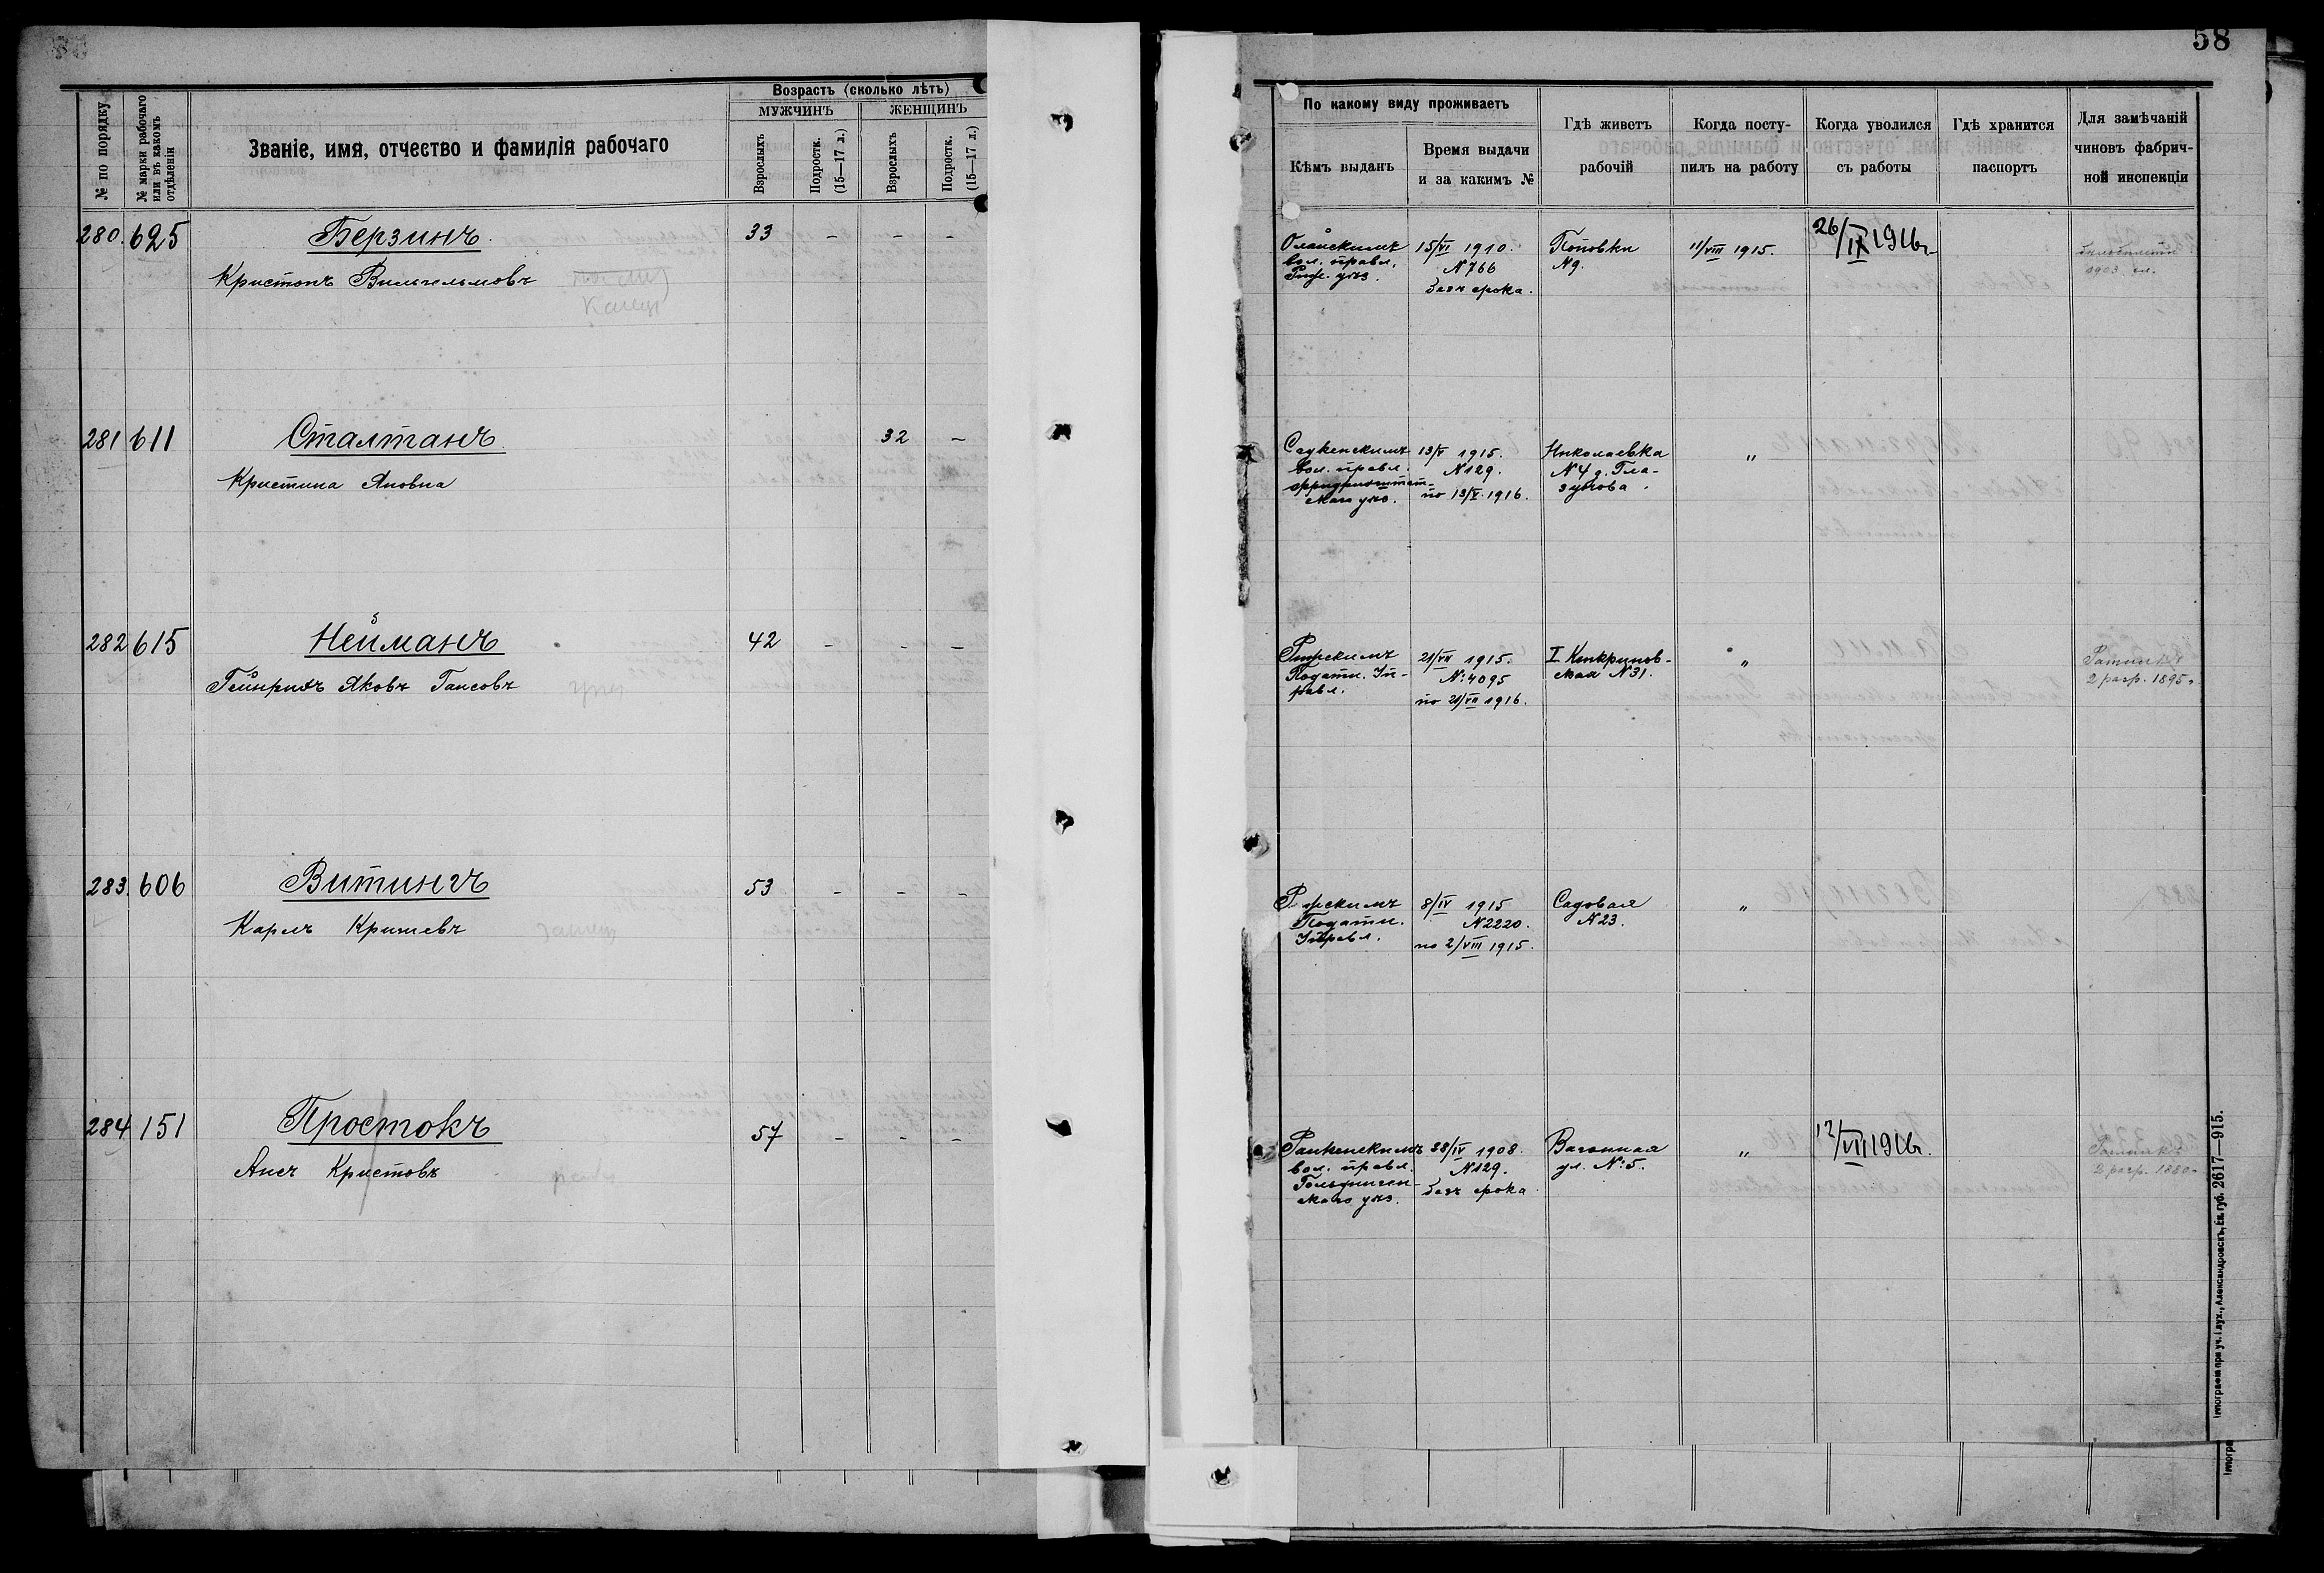 58
№ по порядку
№ марки рабочаго или въ какомъ отдѣленіи
Званіе, имя, отчество и фамилія рабочаго
Возрастъ (сколько лѣтъ)
МУЖЧИНЪ
ЖЕНЩИНЪ
Взрослыхъ
Подростк. (15—17 л.)
Взрослыхъ
Подростк. (15—17 л.)
По какому виду проживаетъ
Кѣмъ выданъ
Время выдачи и за какимъ №
Гдѣ живетъ рабочій
Когда поступилъ на работу
Когда уволился съ работы
Гдѣ хранится паспортъ
Для замѣчаній чиновъ фабричной инспекціи
280. 625 Берзинъ 33 - - -
Кристопъ Вильгельмовъ
Олайскимъ
вол. правл.
Риж. уѣз.
15/VI 1910.
N 766
безъ срока.
Поповки
N 9.
11/VIII 1915.
26/IX 1916 г.
1903
281 611 Сталтанъ 32 -
Кристина Яновна
Саукенскимъ
вол. правл.
Фридрихштат-
скаго уѣз.
13/V 1915.
N 129.
по 13/V 1916.
Николаевка
N 4 д. Гла-
зунова.
"
282 615 Нейманъ 42 - - -
Гейнрихъ Яковъ Гансовъ
Рижскимъ
Податн. Уп-
равл.
21/VII 1915.
N: 4095
по 21/VII 1916.
I Канкринов-
ская N 31.
"
Ратникъ
2 разр. 1895
283. 606 Витингъ 53 - - -
Карлъ Кришевъ
Рижскимъ
Податн.
Управл.
8/IV 1915
N 2220.
по 2/VIII 1915.
Садовая
N 23.
"
284 151 Простокъ 57 - - -
Ансъ Кристовъ
вол. правл.
Гольдинген-
скаго уѣз.
28/IV 1908.
N 129.
безъ срока
Вагонная
ул. N: 5.
"
12/VII 1916 г.
Ратникъ
2 разр. 1880
Типографія при уч. Глух., Александровскъ, Ек. губ. 2617—915.